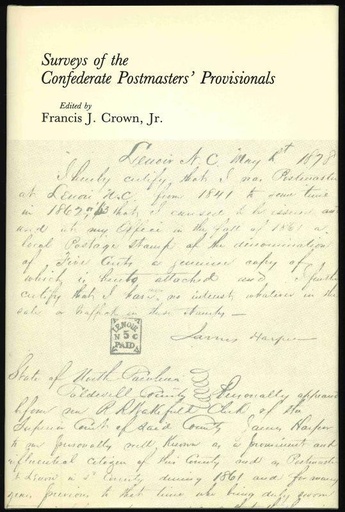 Surveys of the
Confederate Postmasters' Provisionals
Edited by
Francis J. Crown, Jr.
Lenoir N.C. May 1878
I hereby certify, that I was Postmaster
at Lenoir N.C. from 1841 to some time
in 1862, that I caused to be issued
and at my Office in the fall of 1861 a
local Postage Stamp of the denomination
of Five Cents a genuine copy of
which is hereto attached and I further
certify that I have no interest whatever in the
sale or traffick in these stamps —
James Harper
LENOIR
N 5 C
PAID
State of North Carolina
Caldwell County Personally appeared
before me R R Wakefield Clerk of the
Superior Court of said County James Harper
to me personally well known as a prominent and
influential citizen of this County and as Postmaster
at Lenoir in County during 1861 and for many
years previous to that time who being duly sworn